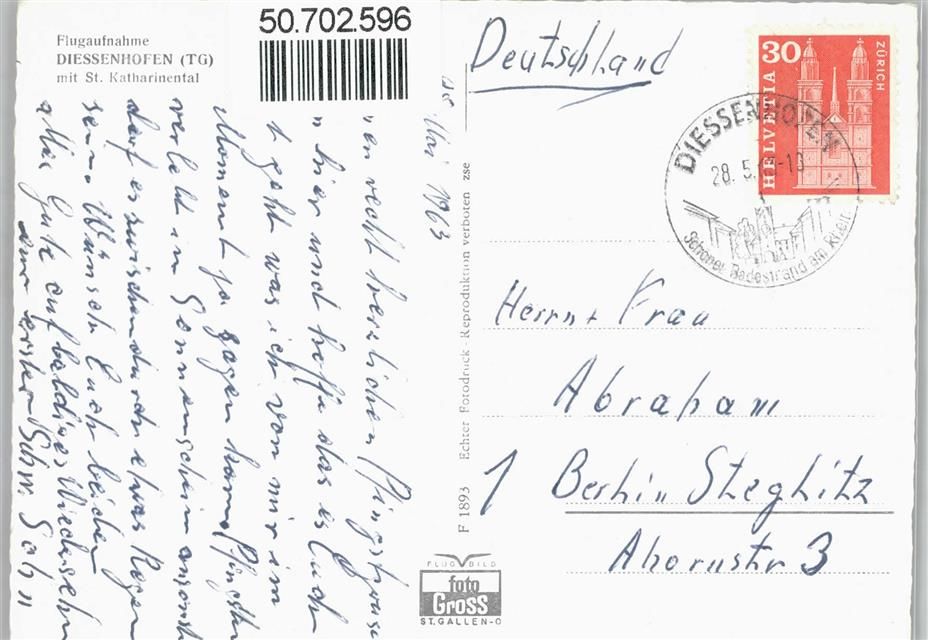 50.702.596
Flugaufnahme
DIESSENHOFEN (TG)
mit St. Katharinental
Mai 1963
en recht herzlichen Pfingstgrus
hier und hoffe das es Euch
geht was ich von mir im
Moment ja sagen kann Pfingsten
verlebt im Sonnenschein ansonst
darf es zwischendurch etwas Regen
sein. Wünsche Euch beiden
alles Gute auf baldiges Wiedersehn
Euer erster Schw. Sch"
F 1893 Echter Fotodruck · Reproduktion verboten zse
FLUGBILD
foto
GROSS
ST.GALLEN-O
Deutschland
30
HELVETIA
ZÜRICH
DIESSENHOFEN
28. 5.
Schöner Badestrand am Rhein
Herrn + Frau
Abraham
1 Berlin Steglitz
Ahornstr 3